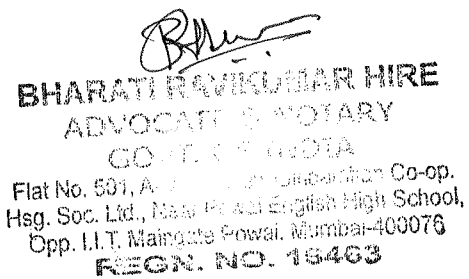 BHARATI RAVIKUMAR HIRE
ADVOCATE & NOTARY
GOVT.
Flat No. 501, A- Co-op.
Hsg. Soc. Ltd., Near Powai English High School,
Opp. I.I.T. Maingate Powai, Mumbai-400076
REGN. NO. 16463